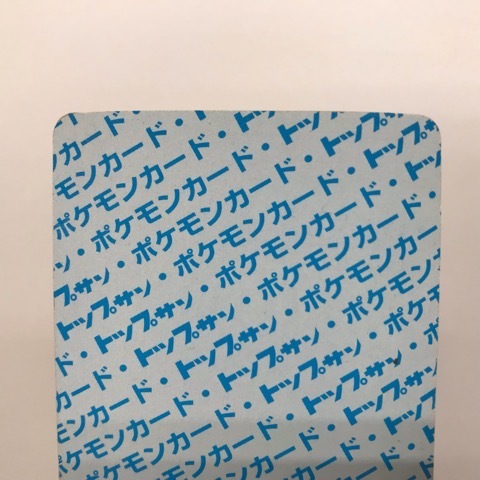 ンカード・トップサン
モンカード・トップサン・
ポケモンカード・トップサン
・ポケモンカード・トップ
サン・ポケモンカード・
トップサン・ポケモンカード
・トップサン・ポケモンカ
ード・トップサン・ポケモン
カード・トップサン・ポケ
ンカード・トップサン・
モンカード・トップサン
ケモンカード・